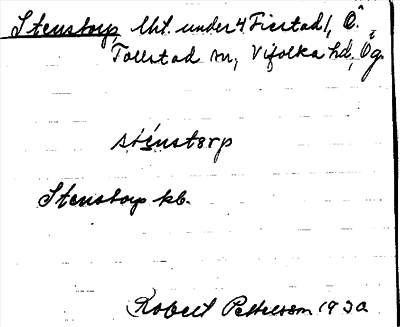 Stenstorp, lht. under 4 Fiestad 1, Ö.
Tollstad sn, Vifolka hd, Ög.
sténstərp
Stenstorp kb.
Robert Pettersson 1930